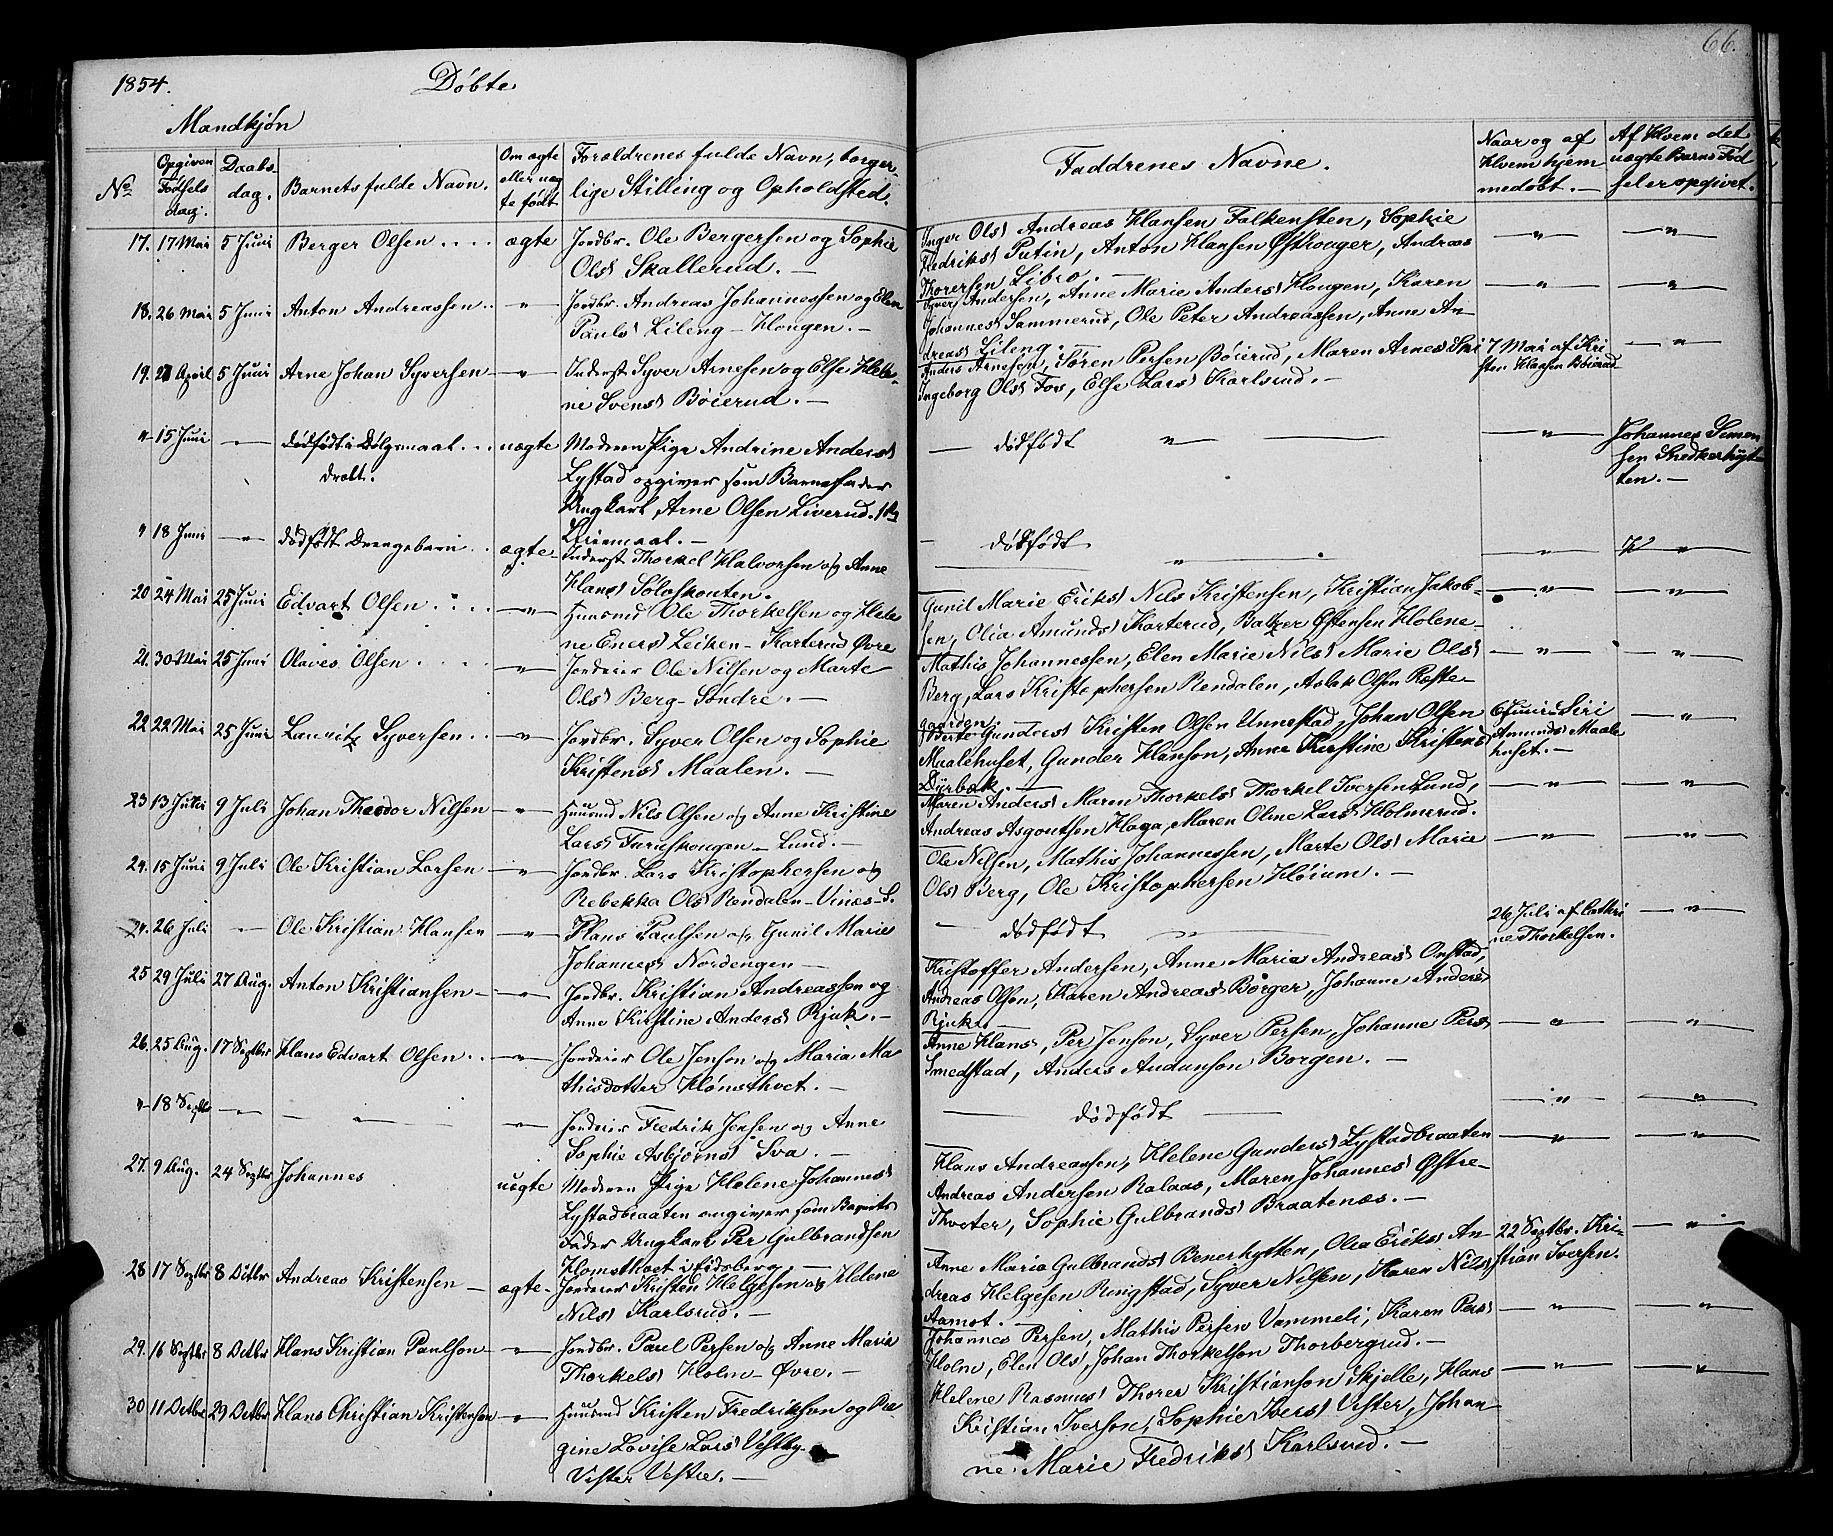 1854.
Döbte
66.
Mandkjön
No
Opgiven Födsels dag.
Daabs dag.
Barnets fulde Navn.
Om ægte eller uægte födt
Forældrenes fulde Navn, borger-
lige Stilling og Opholdsted.
Faddrenes Navne.
Naar og af Hvem hjem medöbt. —
Af Hvem det uægte Barns Födsel er opgivet.
17. 17 Mai 5 Juni Berger Olsen .... ægte Jordbr. Ole Bergersen og Sophie
Olsd Skallerud. —
Inger Olsd Andreas Hansen Falkensten, Sophie
Fredriksd Putin, Anton Hansen Östhouger, Andreas
Thorersen Libro. —
18. 26 Mai 5 Juni Anton Andreassen .. " Jordbr. Andreas Johannessen og Elen
Paulsd Lileng - Hougen. —
Syver Andersen, Anne Marie Andersd Hougen, Karen
Johannesd Sammerud, Ole Peter Andreassen, Anne An-
dreasd Lileng. —
19. 21 April 5 Juni Arne Johan Syversen " Inderst Syver Arnesen og Else Hele-
ne Svensd Böierud. —
Anders Arnesen, Sören Persen Böierud, Maren Arnesd
Ingeborg Olsd Fos, Else Larsd Karlsrud. —
7 Mai af Kri
sten Hansen Böierud
" 15 Juni — dödfödt i Dölgsmaal ... uægte Moderen Pige Andrine Andersd
dræbt.
Lystad opgiver som Barnefader
Ungkarl Arne Olsen Liverud. 1ste
Leiermaal. —
— dödfödt " —
Johannes Simen-
sen Snedkerhyt-
ten. —
" 18 Juni — dödfödt Drengebarn .. ægte Inderst Thorkel Halvorsen og Anne
Hansd Solaskouten.
— dödfödt
20 24 Mai 25 Juni Edvart Olsen .... " Huusmd Ole Thorkelsen og Hele
ne Enersd Leiken - Karterud Övre
Gunil Marie Eriksd Nils Kristensen, Kristian Jakob-
sen, Olia Amundsd Karterud, Balzer Östensen Holene-
21. 30 Mai 25 Juni Olaves Olsen .... " Jordeier Ole Nilsen og Marte
Olsd Berg - Söndre. —
Mathis Johannessen, Elen Marie Nilsd Marie Olsd
Berg, Lars Kristophersen Rendalen, Aslak Olsen Raste-
gaarden. —
22 22 Mai 25 Juni Lauritz Syversen .. " Jordbr. Syver Olsen og Sophie
Kristensd Maalen. —
Gundersd Kristen Olsen Unnestad, Johan Olsen
Maalehuset, Gunder Hanson, Anne Kirstine Kristensd
Dyrbæk. —
6 Juni Siri
Amundsd Maale
huset. —
23 13 Juni 9 Juli Johan Theodor Nilsen " Huusmd Nils Olsen og Anne Kristine
Larsd Furuskougen - Lund. —
Maren Andersd Maren Thorkelsd Thorkel Iversen Lund,
Andreas Asgoutsen Haga, Maren Oline Larsd Holmerud.
24. 15 Juni 9 Juli Ole Kristian Larsen " Jordbr. Lars Kristophersen og
Rebekka Olsd Rendalen - Vines - S.
Ole Nilsen, Mathis Johannessen, Marte Olsd Marie
Olsd Berg, Ole Kristophersen Höium. —
26 Juli — Ole Kristian Hansen " Hans Paulsen og Gunil Marie
Johannesd Nordengen —
— dödfödt " —
26 Juli af Cathri
ne Thorkelsen.
25 29 Juli 27 Aug. Anton Kristiansen " Jordbr. Kristian Andreassen og
Anne Kirstine Andersd Rjuk. —
Kristoffer Andersen, Anne Maria Andreasd Onstad,
Andreas Olsen, Karen Andreasd Borger, Johanne Andersd
Rjuk. —
26. 25 Aug. 17 Septbr Hans Edvart Olsen .. " Jordeier Ole Jenson og Maria Ma-
thisdotter Hönsthvet. —
Anne Hansd, Per Jenson, Syver Persen, Johanne Persd
Smedstad, Anders Audunson Borgen. —
" 18 Septbr — " Jordeier Fredrik Jensen og Anne
Sophie Asbjörnsd Sva. —
— dödfödt —
27. 9 Aug. 24 Septbr Johannes uægte Moderen Pige Helene Johannesd
Lystadbraaten angiver som Barnets
Fader Ungkarl Per Gulbrandsen
Homsthvet i Eidsberg. —
Hans Andreassen, Helene Gundersd Lystadbraaten
Andreas Andersen Ralaas, Maren Johannesd Östre-
Thveter, Sophie Gulbrandsd Braatenæs. —
28 17 Septbr 8 Octbr Andreas Kristensen — ægte. Jordeier Kristen Helgesen og Helene
Nilsd Karlsrud. —
Anne Maria Gulbrandsd Benerhytten, Olea Eriksd An-
dreas Helgesen Ringstad, Syver Nilsen, Karen Nilsd
Aamot. —
22 Septbr. Kri-
stian Iversen.
29. 16 Septbr 8 Octbr Hans Kristian Paulson " Jordbr. Paul Persen og Anne Maria
Thorkelsd Holm - Övre. —
Johannes Persen, Mathis Persen Vammeli, Karen Persd
Holm, Elen Olsd, Johan Thorkelson Thorbergrud. —
30 11 Octbr 29 Octbr Hans Christian Kristenson " Huusmd Kristen Fredrikson og Re-
gine Lovise Larsd Vestby
Vister Vestre. —
Helene Rasmusd Thorer Kristianson Skjelle, Hans
Kristian Iverson, Sophie Iversd Vister, Johan-
ne Marie Fredriksd Karlsrud. —